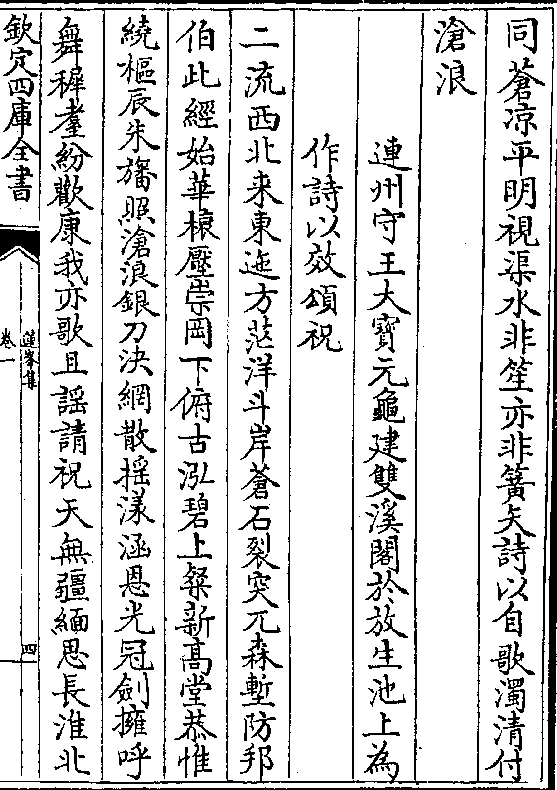 同蒼凉平明視渠水非笙亦非簧矢詩以自歌濁清付
滄浪
連州守王大寶元龜建雙溪閣於放生池上為
作詩以效頌祝
二流西北来東迤方茫洋斗岸蒼石裂突兀森塹防邦
伯此經始華榱壓崇岡下俯古泓碧上粲新高堂恭惟
繞樞辰朱旛照滄浪銀刀決網散揺漾涵恩光冠劍擁呼
舞穉耋紛歡康我亦歌且謡請祝天無疆緬思長淮北
欽定四庫全書
蓮峯集
卷一
四